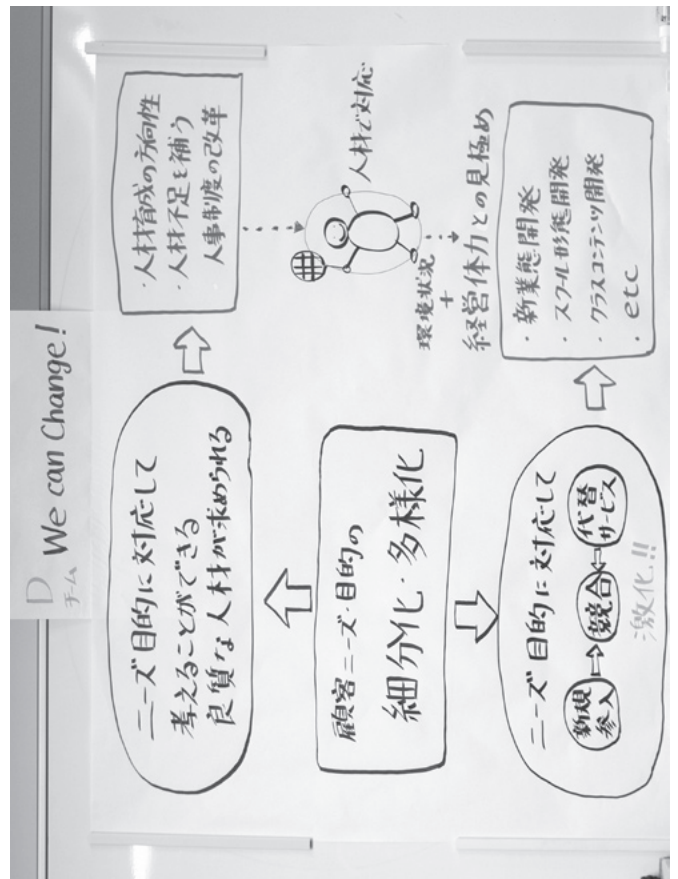 D
チーム
We can Change!
ニーズ目的に対応して
考えることができる
良質な人材が求められる
・人材育成の方向性
・人材不足を補う
人事制度の改革
人材で対応
顧客ニーズ・目的の
細分化・多様化
環境状況
+
経営体力との見極め
ニーズ目的に対応して
新規
参入
競合
代替
サービス
激化!!
・新業態開発
・スクール形態開発
・クラスコンテンツ開発
・etc